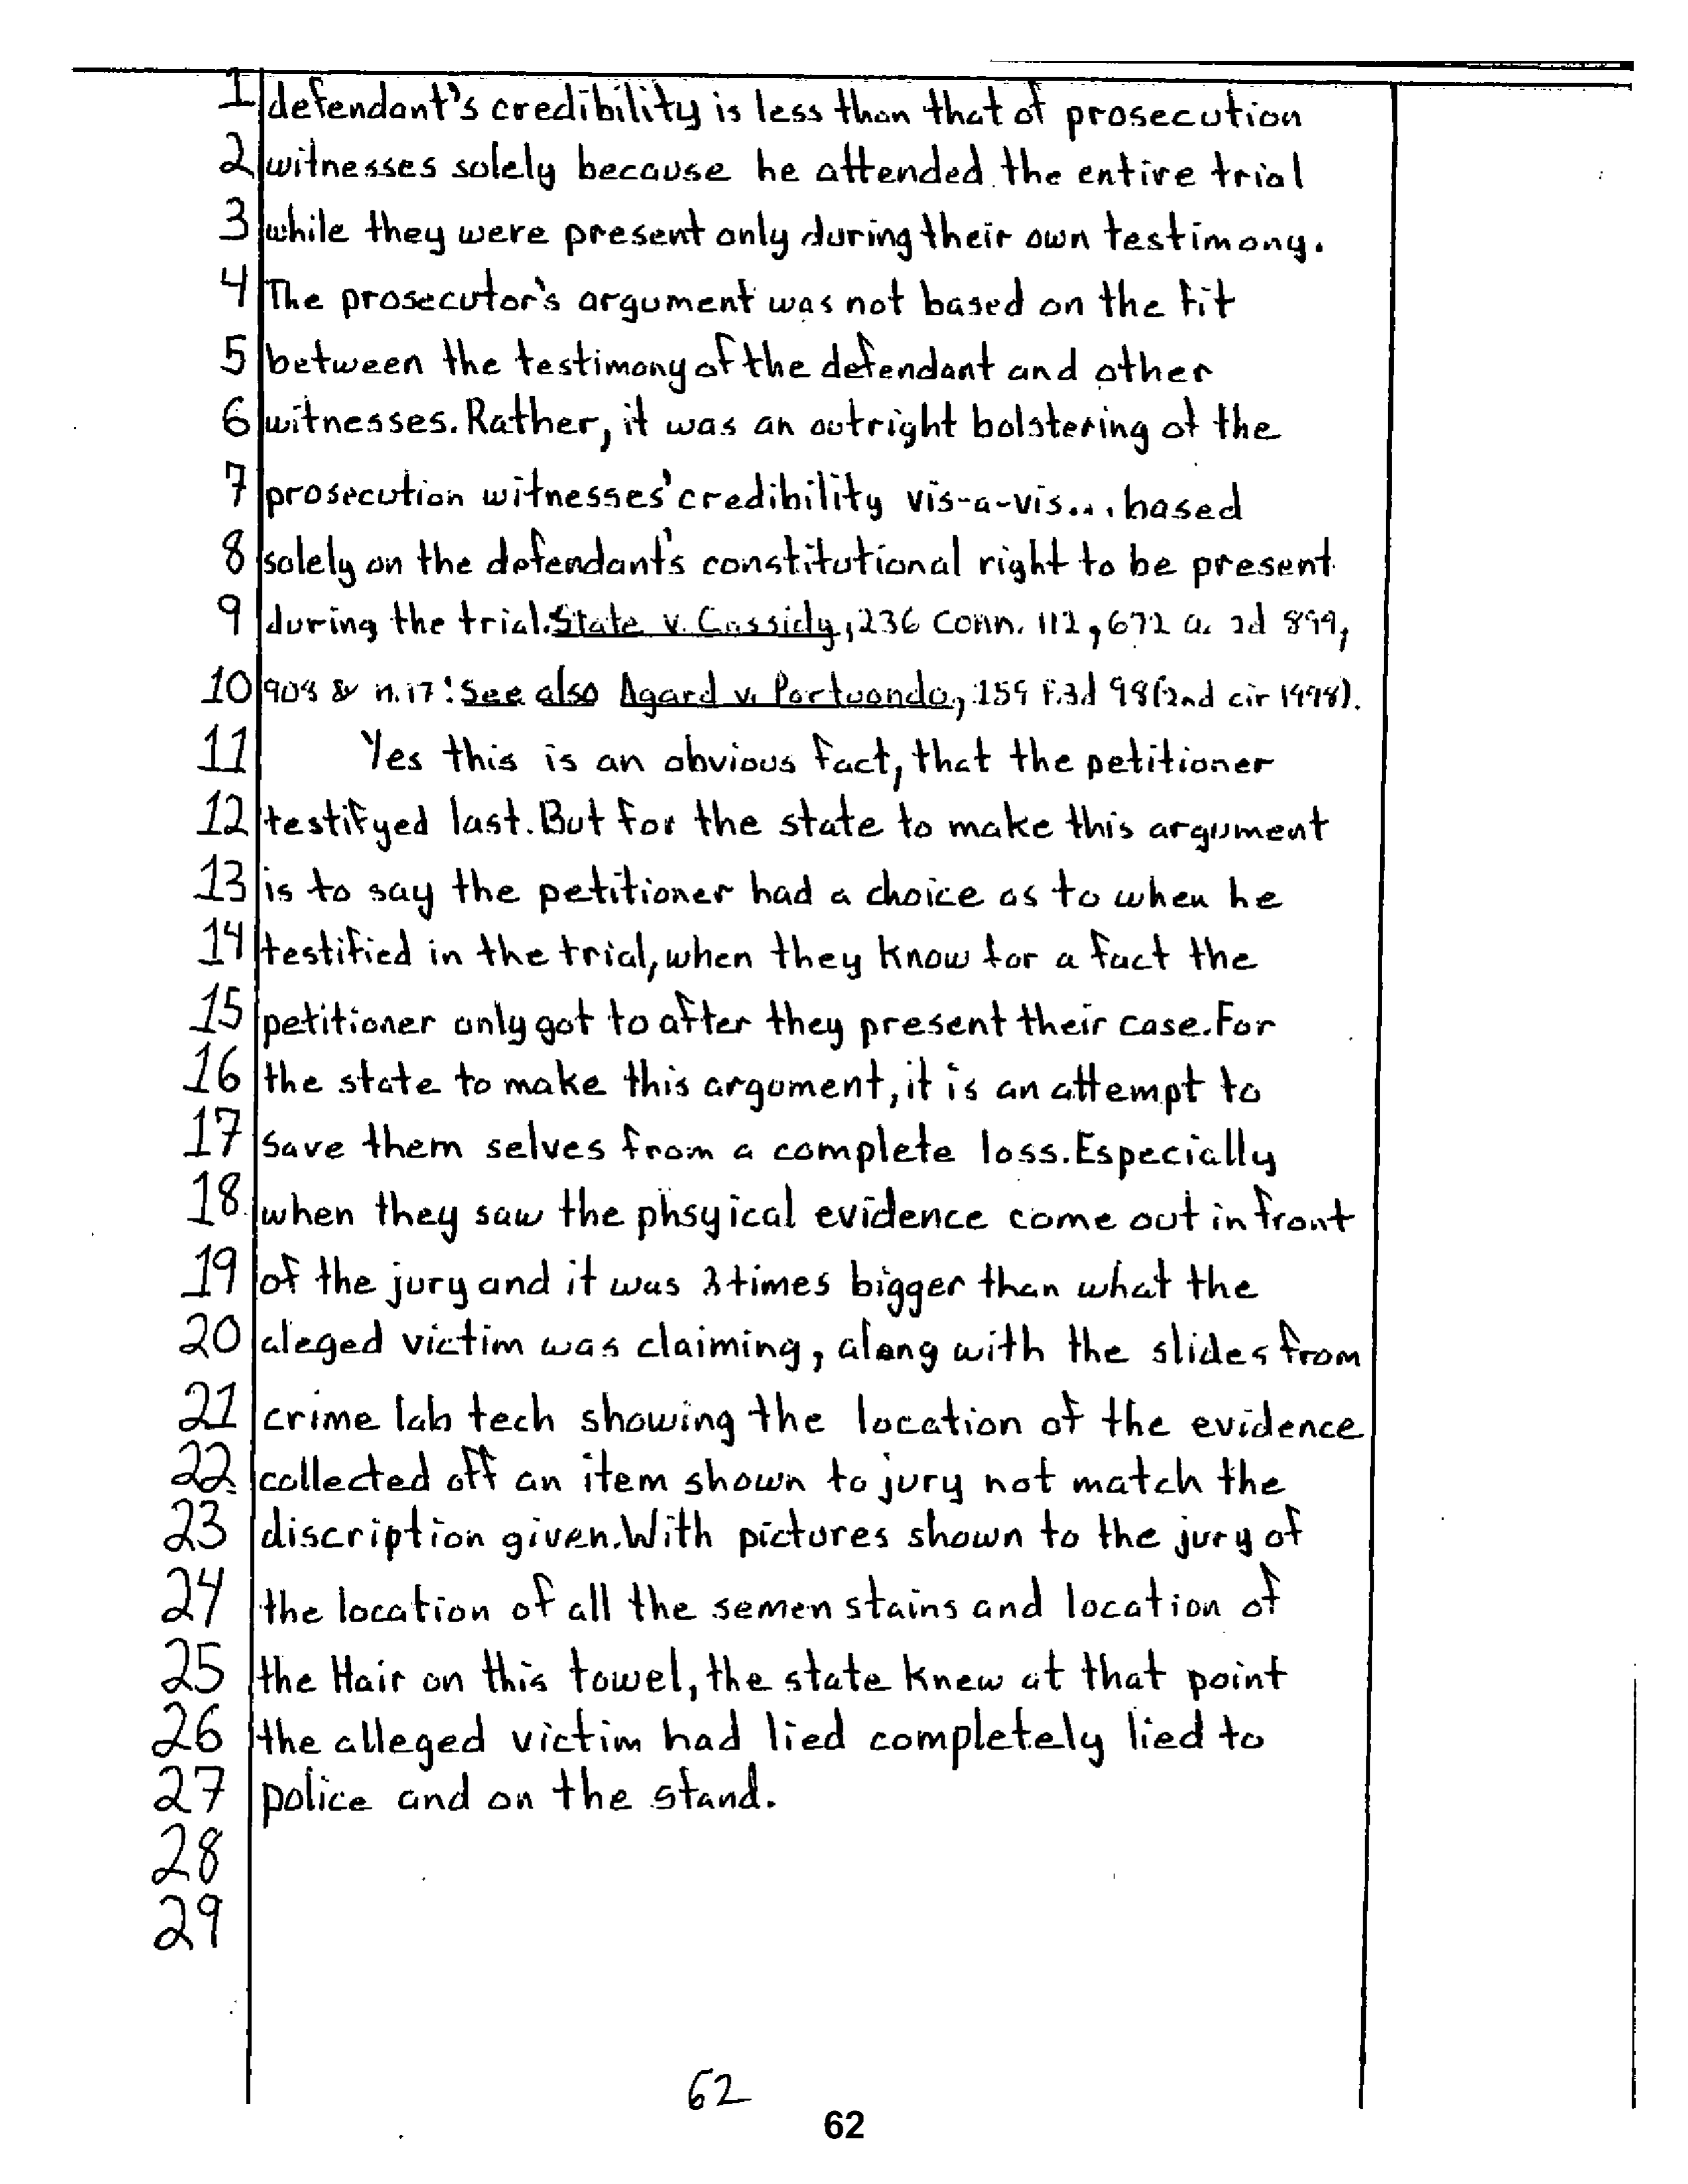 1 defendant's credibility is less than that of prosecution
2 witnesses solely because he attended the entire trial
3 while they were present only during their own testimony.
4 The prosecutor's argument was not based on the fit
5 between the testimony of the defendant and other
6 witnesses. Rather, it was an outright bolstering of the
7 prosecution witnesses' credibility vis-a-vis... based
8 solely on the defendant's constitutional right to be present
9 during the trial. State v. Cassidy, 236 Conn. 112, 672 A. 2d 899,
10 908 & n.17! See also Agard v. Portuondo, 159 F.3d 98 (2nd cir 1998).
11 Yes this is an obvious fact, that the petitioner
12 testifyed last. But for the state to make this argument
13 is to say the petitioner had a choice as to when he
14 testified in the trial, when they know for a fact the
15 petitioner only got to after they present their case. For
16 the state to make this argument, it is an attempt to
17 Save them selves from a complete loss. Especially
18 when they saw the phsyical evidence come out in front
19 of the jury and it was 3 times bigger than what the
20 aleged victim was claiming, along with the slides from
21 crime lab tech showing the location of the evidence
22 collected off an item shown to jury not match the
23 discription given. With pictures shown to the jury of
24 the location of all the semen stains and location of
25 the Hair on this towel, the state knew at that point
26 the alleged victim had lied completely lied to
27 police and on the stand.
28
29
62
62